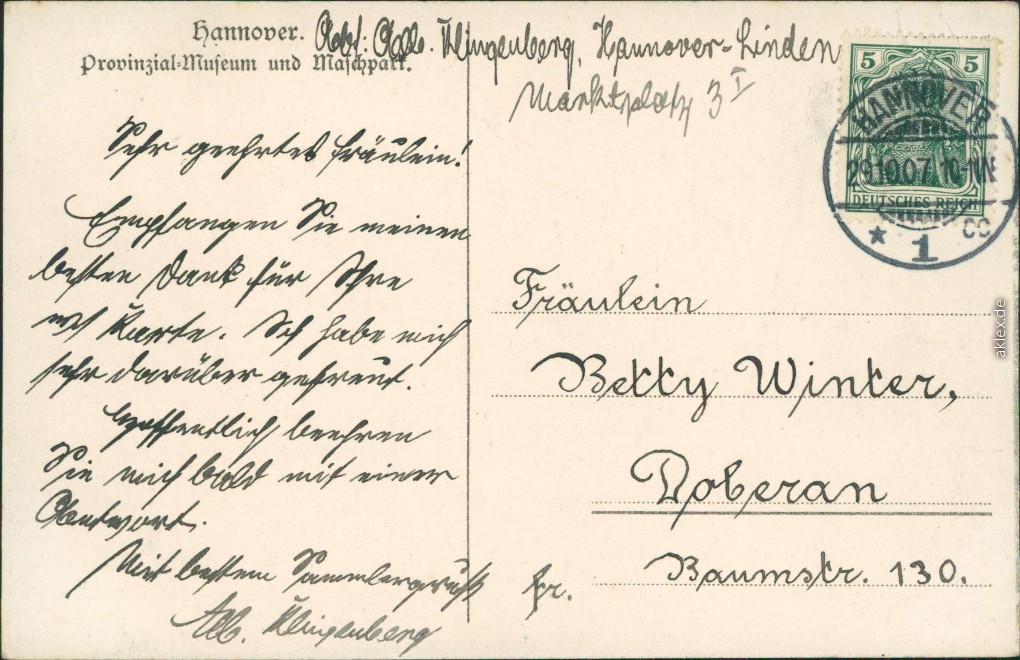 Hannover.
Provinzial-Museum und Maschpark.
Abs: Alb. Klingenberg, Hannover-Linden
Marktplatz 3 I
Sehr geehrtes Fräulein!
Empfangen Sie meinen
besten Dank für Ihre
Karte. Ich habe mich
sehr darüber gefreut.
Hoffentlich beehren
Sie mich bald mit einer
Antwort.
Mit bestem Sammlergruß
Alb. Klingenberg
5 5
DEUTSCHES REICH
HANNOVER
29.10.07. 10-11N
* 1 cc
Fräulein
Betty Winter,
Doberan
Baumstr. 130.
fr.
aklex.de